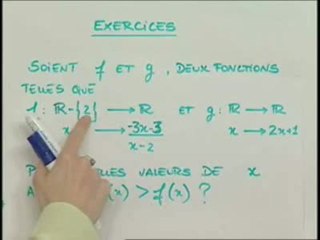 EXERCICES
SOIENT f ET g, DEUX FONCTIONS
TELLES QUE
f: ℝ-{2} ⟶ ℝ ET g: ℝ ⟶ ℝ
x -3x-3/x-2 x ⟶ 2x+1
VALEURS DE x
(x) > f(x) ?